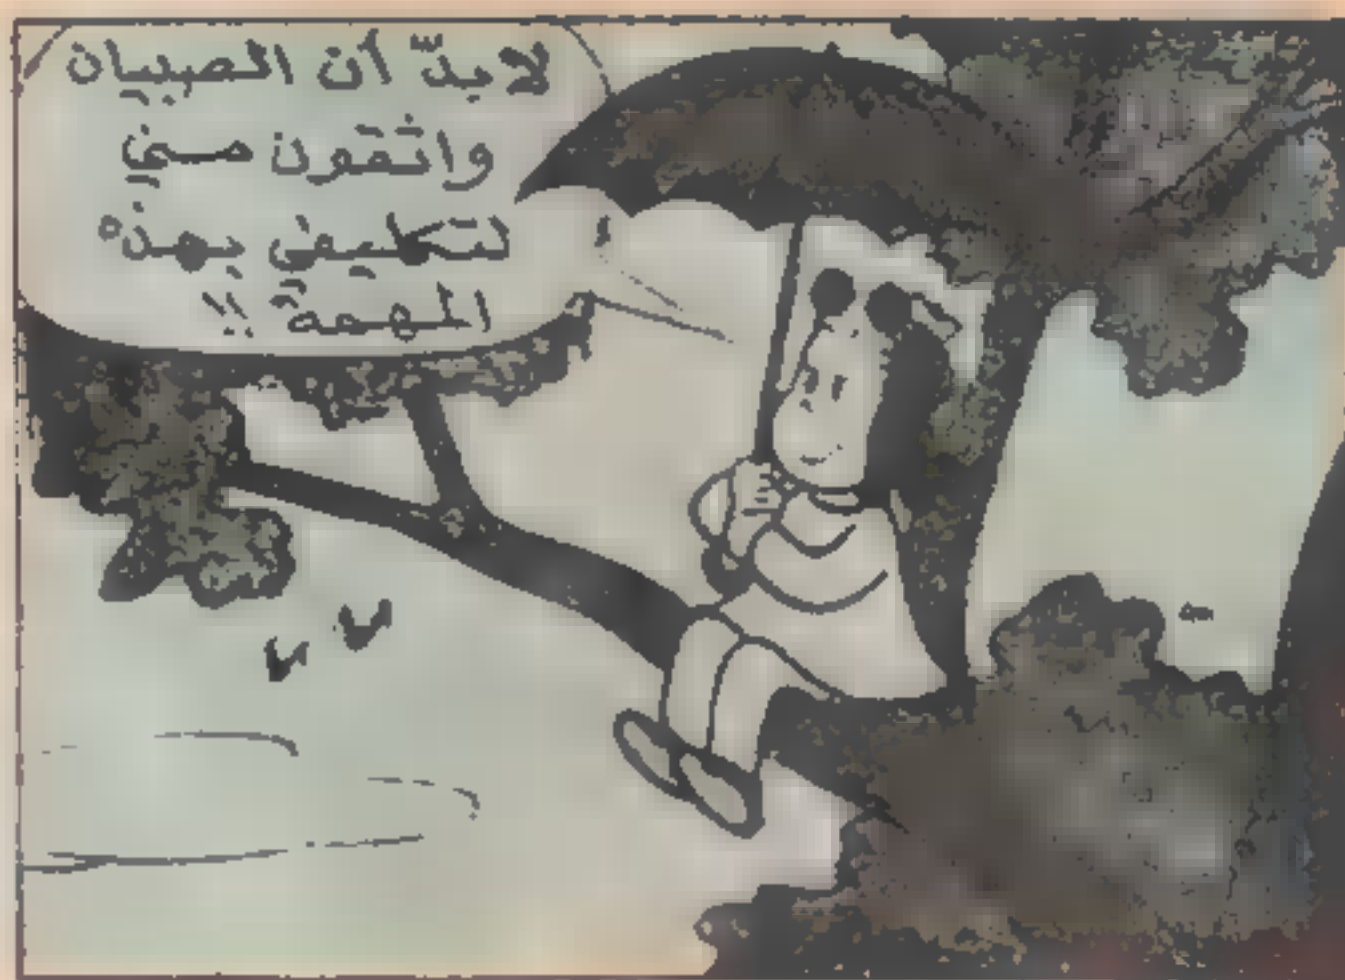 لا بدّ أن الصبيان
واثقون مني
لتكليفي بهذه
المهمة !!